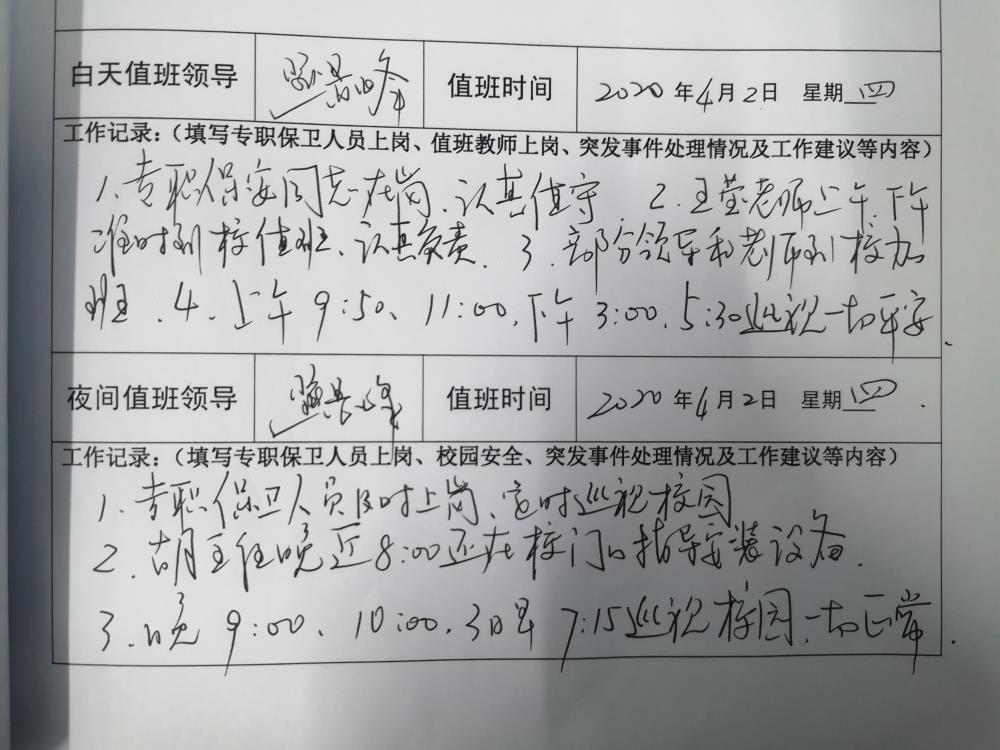 白天值班领导 值班时间 2020年4月2日 星期四
工作记录：（填写专职保卫人员上岗、值班教师上岗、突发事件处理情况及工作建议等内容）
1、专职保安同志在岗、认真值守 2、王莹老师上午、下午
准时到校值班、认真负责、3、部分领导和老师到校加
班、4、上午9:50、11:00、下午3:00、5:30巡视一切平安.
夜间值班领导 值班时间 2020年4月2日 星期四.
工作记录：（填写专职保卫人员上岗、校园安全、突发事件处理情况及工作建议等内容）
1、专职保卫人员及时上岗、定时巡视校园
2、胡主任晚近8:00还在校门口指导安装设备.
3、晚9:00、10:00、3日早7:15巡视校园、一切正常.